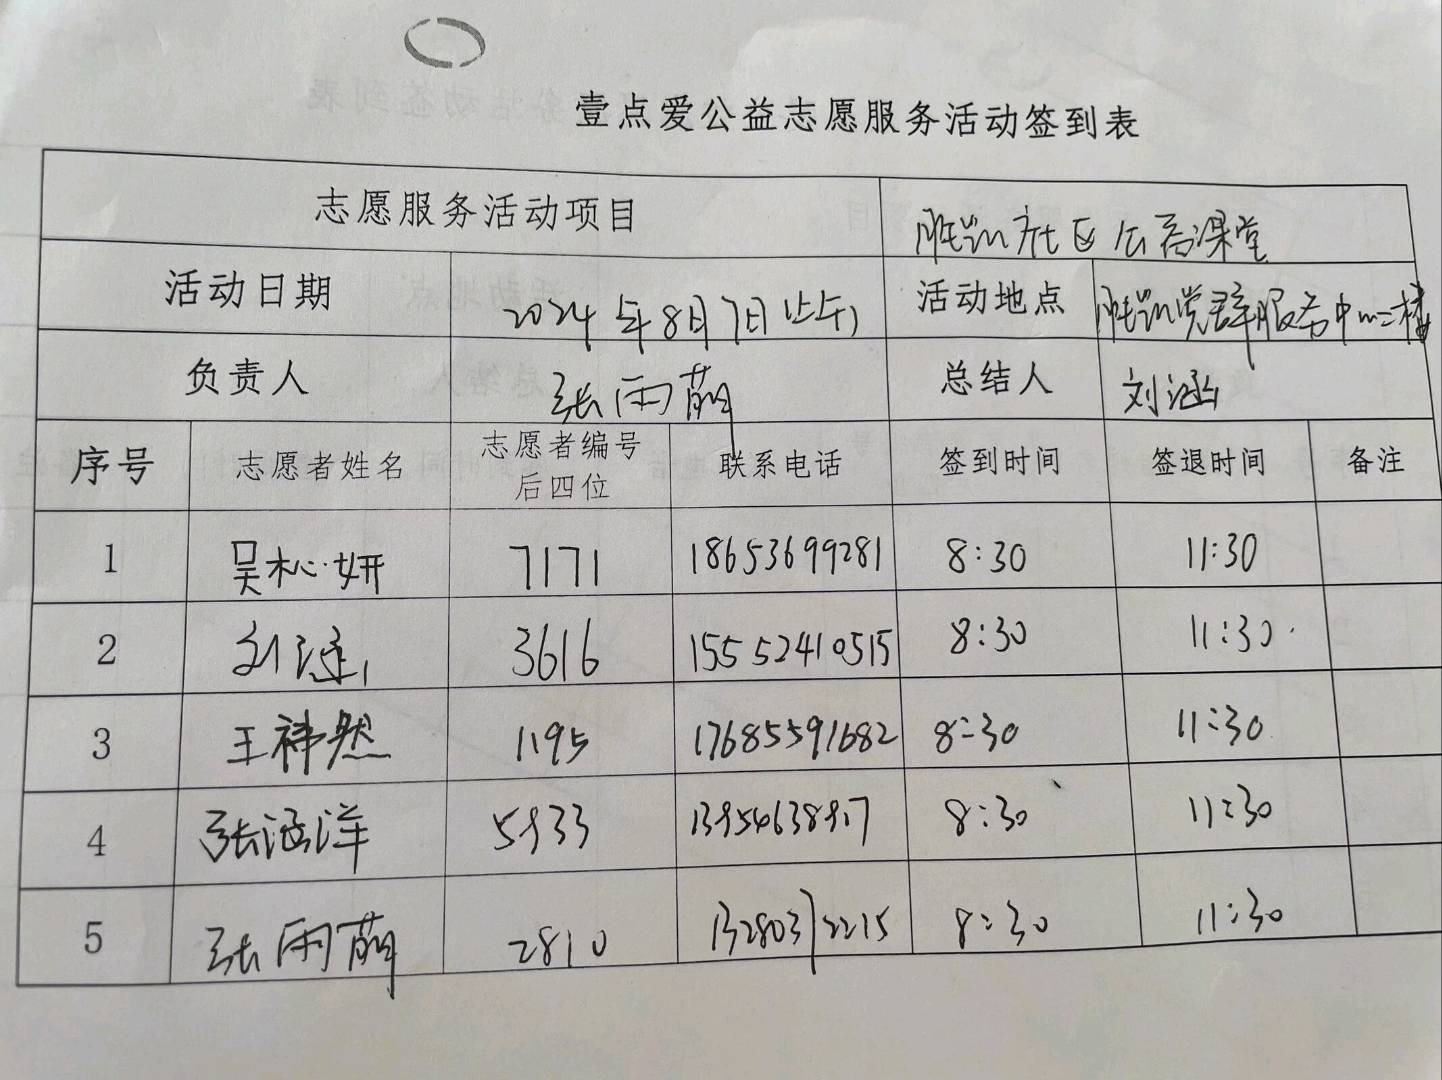 壹点爱公益志愿服务活动签到表
志愿服务活动项目 社区公益课堂
活动日期 2024年8月7日上午 活动地点 党群服务中心二楼
负责人 张雨萌 总结人 刘涵
序号 志愿者姓名 志愿者编号后四位 联系电话 签到时间 签退时间 备注
1 吴松妍 7171 18653699281 8:30 11:30
2 刘涵 3616 15552410515 8:30 11:30
3 王祎然 1195 17685591682 8:30 11:30
4 张涵洋 5933 8:30 11:30
5 张雨萌 2810 8:30 11:30